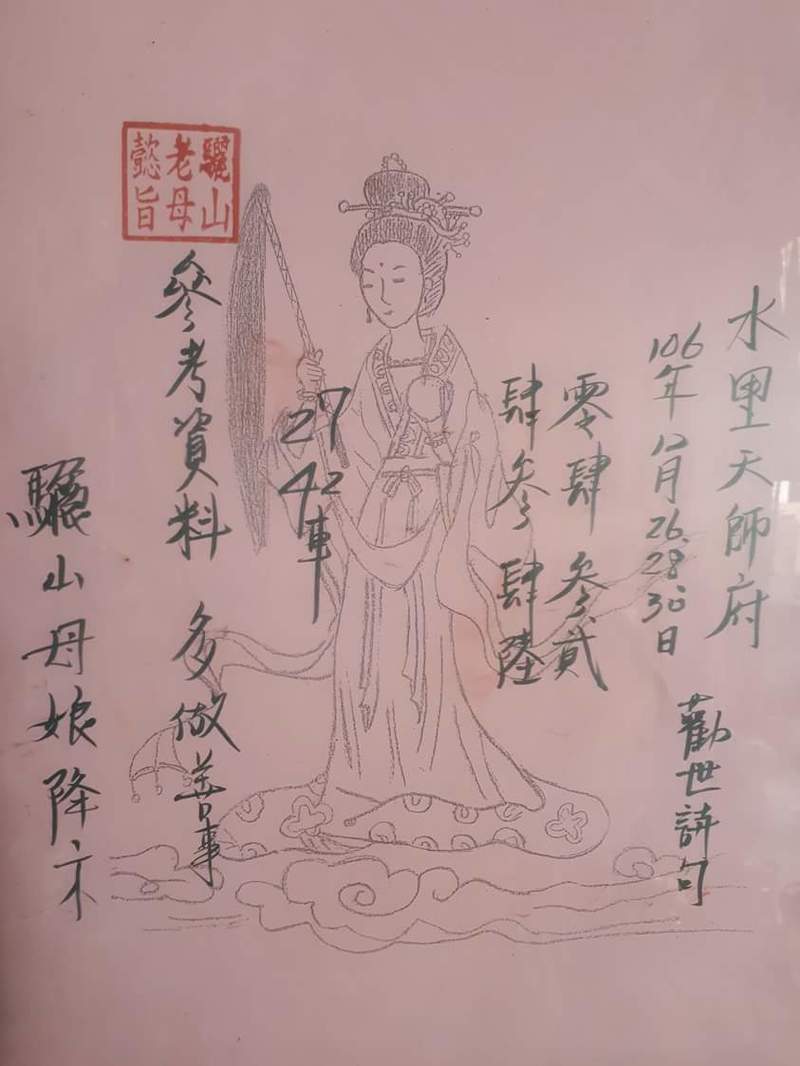 水里天師府
106年12月26.28.30日
勸世詩句
零肆 叁貳
肆叁 肆陸
27
42車
參考資料 多做善事
驪山老母懿旨
驪山母娘降示